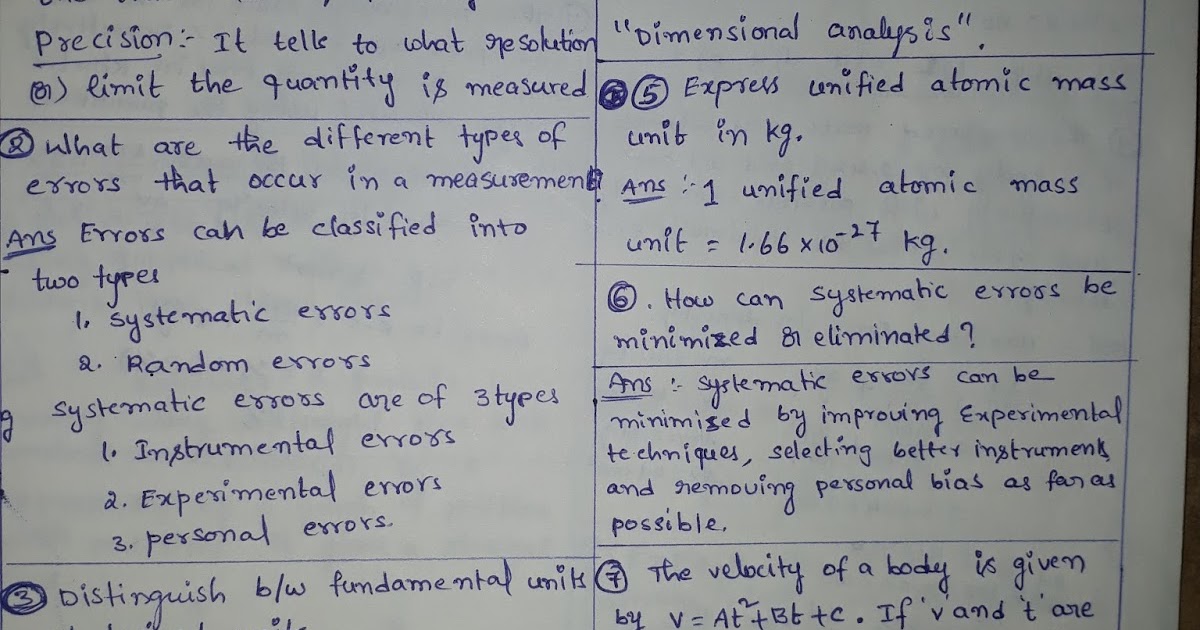 Precision:- It tells to what resolution
(or) limit the quantity is measured
② What are the different types of
errors that occur in a measurement?
Ans Errors can be classified into
two types
1. Systematic errors
2. Random errors
Systematic errors are of 3 types
1. Instrumental errors
2. Experimental errors
3. personal errors.
③ Distinguish b/w fundamental units
"Dimensional analysis".
⑤ Express unified atomic mass
unit in kg.
Ans :- 1 unified atomic mass
unit = 1.66 × 10⁻²⁷ kg.
⑥. How can systematic errors be
minimized or eliminated?
Ans :- Systematic errors can be
minimized by improving Experimental
techniques, selecting better instruments
and removing personal bias as far as
possible.
⑦ The velocity of a body is given
by V = At²+Bt+C. If 'v' and 't' are